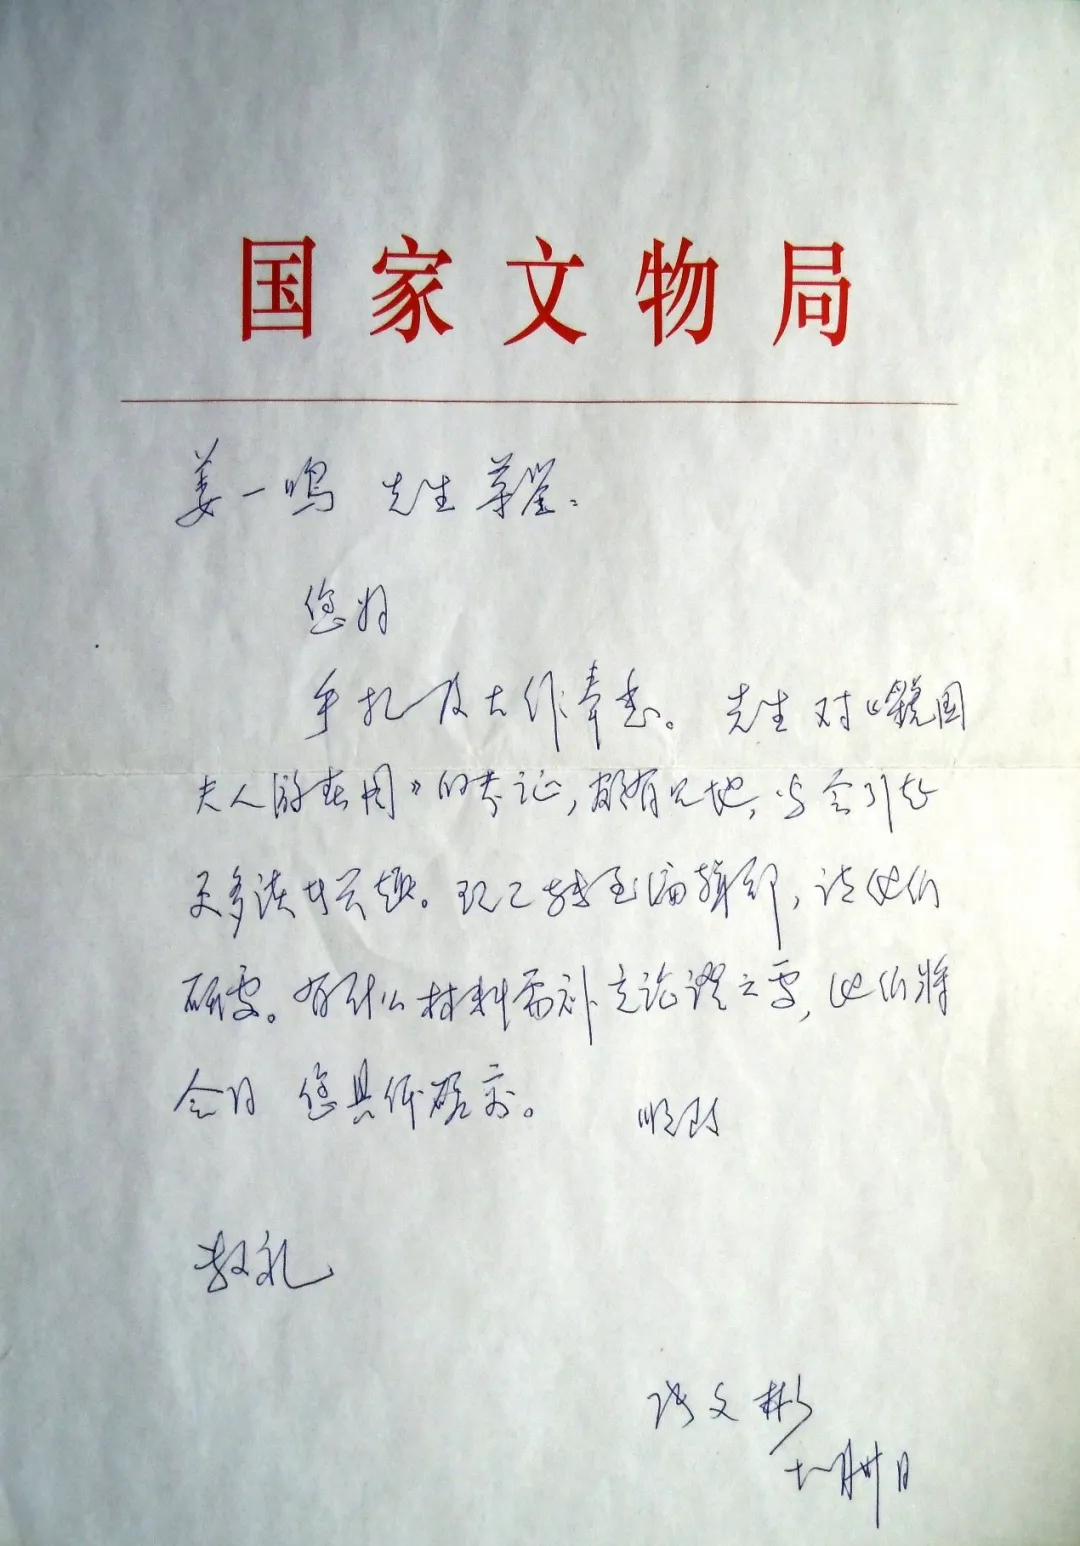 国家文物局
姜一鸣 先生尊鉴:
您好
手札及大作奉悉。先生对《虢国
夫人游春图》的考证,颇有见地,当会引起
更多读者兴趣。现已转至编辑部,请他们
研处。有什么材料需补充论证之处,他们将
会同 您具体磋商。 顺致
敬礼
张文彬
十一月卅日